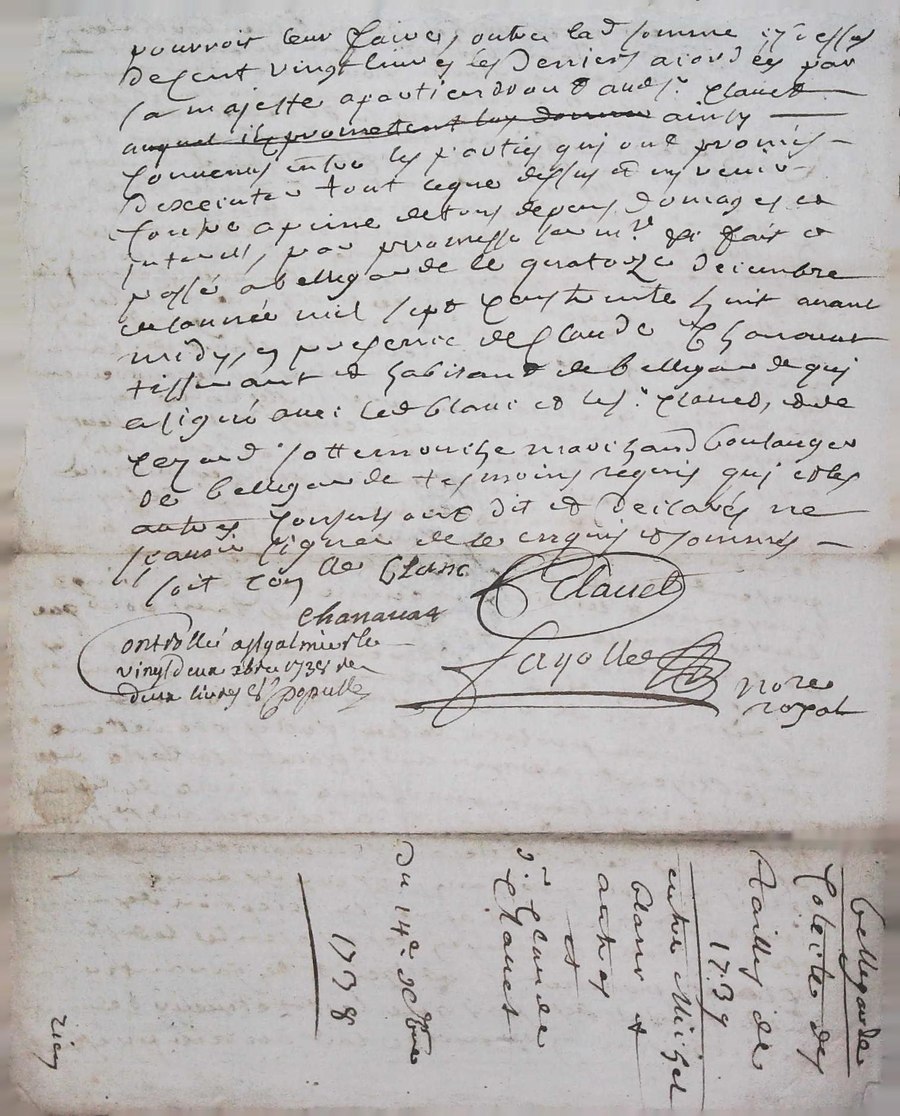 pourroit leur faire, outre lad somme cy dessus
de cent vingt livres les deniers acordées par
sa majesté apartiendront aud sr. Clauet
auquel ils promettent les donner ainsy
convenus entre les parties quj ont promis
dexecuter tout ceque dessus et ny venir
contre apeine detous depens domages et
interets, par promesse serm.t &c fait et
passé a bellegarde le quatorze decembre
de lannée mil sept cens trente huit avant
midy, en presence de Claude Chanauat
tisserant et habitant de bellegarde quj
a signé avec led blanc et led sr. Clauet, et de
jotternouche marchand boulanger
de bellegarde temoins requis quj et les
autres consuls ont dit et declarés ne
scavoir signer de ce enquis et sommés
soit con.
De blanc
Clauet
Chanauat
Controllé a st galmier le
vingt deux xbre 1738 re
deux livres
Fayolle
nore
royal
bellegarde
Colecte des
tailles de
1739
entre Michel
blanc et
autres
et
sr. Claude
Clauet
Du 14e. xbre
1738